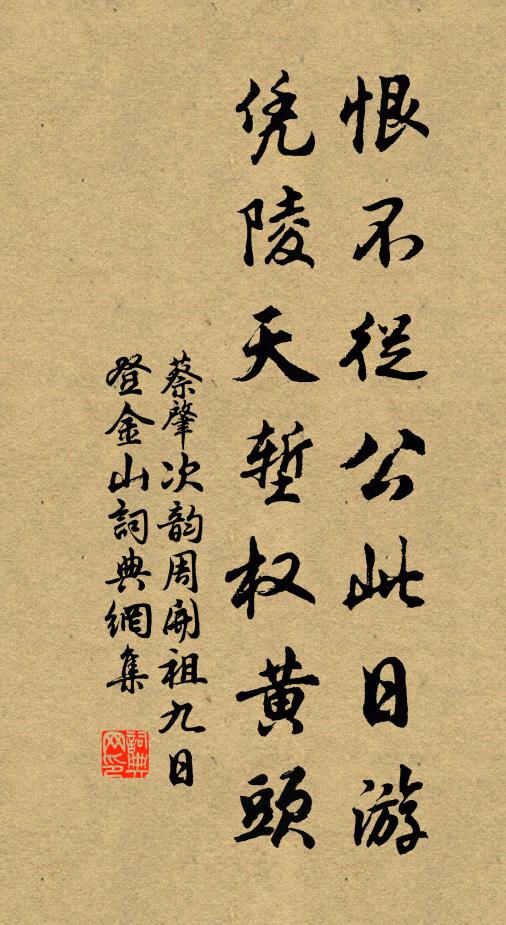 恨不從公此日游
凭陵天堑权黄頭
蔡肇次韵周開祖九日
登金山詞典網集
詞典网印